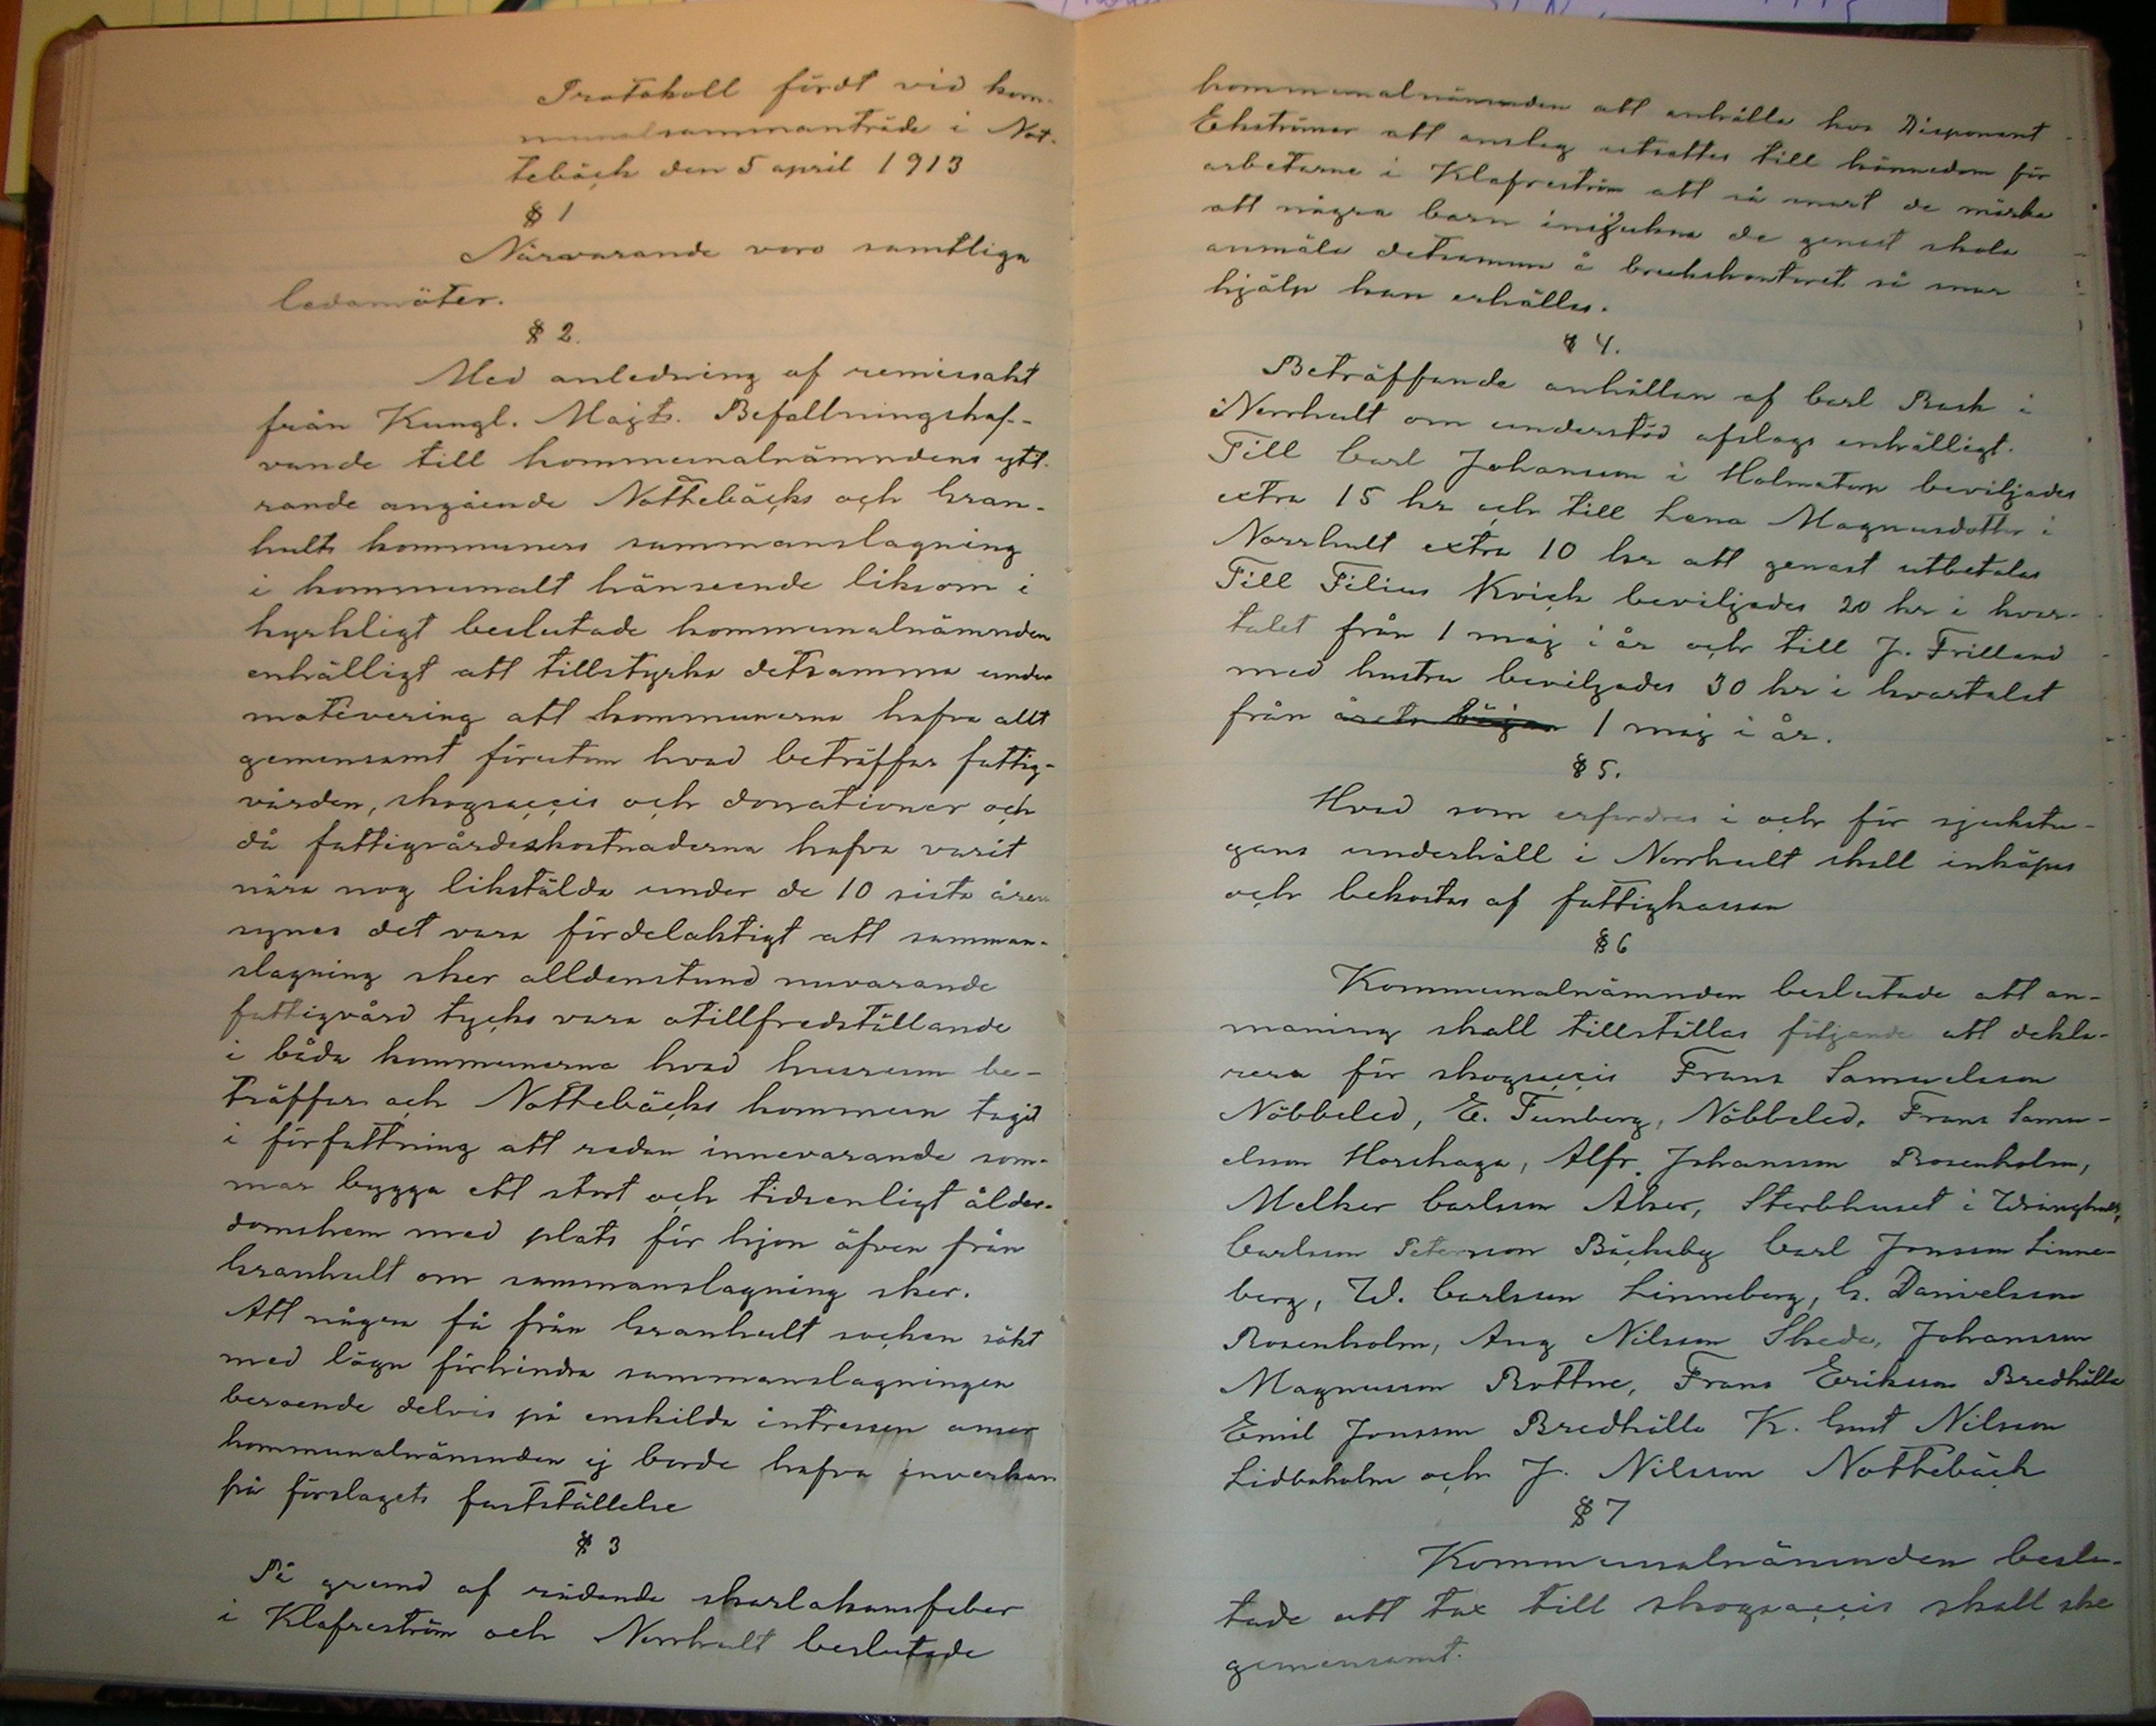 Protokoll fördt vid kom-
munalsammanträde i Not-
tebäck den 5 april 1913
§ 1
Närvarande voro samtliga
ledamöter.
§ 2.
Med anledning af remissakt
från Kungl. Majts. Befallningshaf-
vande till kommunalnämndens ytt-
rande angående Nottebäcks och Gran-
hults kommuners sammanslagning
i kommunalt hänseende liksom i
kyrkligt beslutade kommunalnämnden
enhälligt att tillstyrka detsamma under
motivering att kommunerna hafva allt
gemensamt förutom hvad beträffar fattig-
vården, skogsaccis och donationer och
då fattigvårdskostnaderna hafva varit
nära nog likstälda under de 10 sista åren
synes det vara fördelaktigt att samman-
slagning sker alldenstund nuvarande
fattigvård tycks vara otillfredställande
i båda kommunerna hvad husrum be-
träffar och Nottebäcks kommun tagit
i författning att redan innevarande som-
mar bygga ett stort och tidsenligt ålder-
domshem med plats för hjon äfven från
Granhult om sammanslagning sker.
Att några få från Granhult socken sökt
med lögn förhindra sammanslagningen
beroende delvis på enskilda intressen anser
kommunalnämnden ej borde hafva inverkan
på förslagets fastställelse
§ 3
På grund af rådande skarlakansfeber
i Klafreström och Norrhult beslutade
kommunalnämnden att anhålla hos Disponent
Ekströmer att anslag utsattes till kännedom för
arbetarne i Klafreström att så snart de märka
att några barn insjukna de genast skola
anmäla detsamma å brukskontoret så snar
hjälp kan erhållas.
§ 4.
Beträffande anhållan af Carl Rask i
Norrhult om understöd afslogs enhälligt.
Till Carl Johansson i Holmatorp beviljades
extra 15 kr och till Lena Magnusdotter i
Norrhult extra 10 kr att genast utbetalas
Till Filius Kvick beviljades 20 kr i kvar-
talet från 1 maj i år och till J. Frilland
med hustru beviljades 30 kr i kvartalet
från årets början 1 maj i år.
§ 5.
Hvad som erfordras i och för sjukstu-
gans underhåll i Norrhult skall inköpas
och bekostas af fattigkassan
§ 6
Kommunalnämnden beslutade att an-
maning skall tillställas följande att dekla-
rera för skogsaccis Frans Samuelsson
Nöbbeled, E. Funberg, Nöbbeled, Frans Samu-
elsson Horshaga, Alfr. Johansson Rosenholm,
Melker Carlsson Aker, Sterbhuset i
Carlsson Peterson Bäckaby Carl Jonsson Linne-
berg, W. Carlsson Linneberg, G. Danielsson
Rosenholm, Aug Nilsson Skeda, Johansson
Magnusson Rottne, Frans Eriksson Bredhälla
Emil Jonsson Bredhälla K. Gust Nilsson
Lidboholm och J. Nilsson Nottebäck
§ 7
Kommunalnämnden beslu-
tade att tax till skogsaccis skall ske
gemensamt.